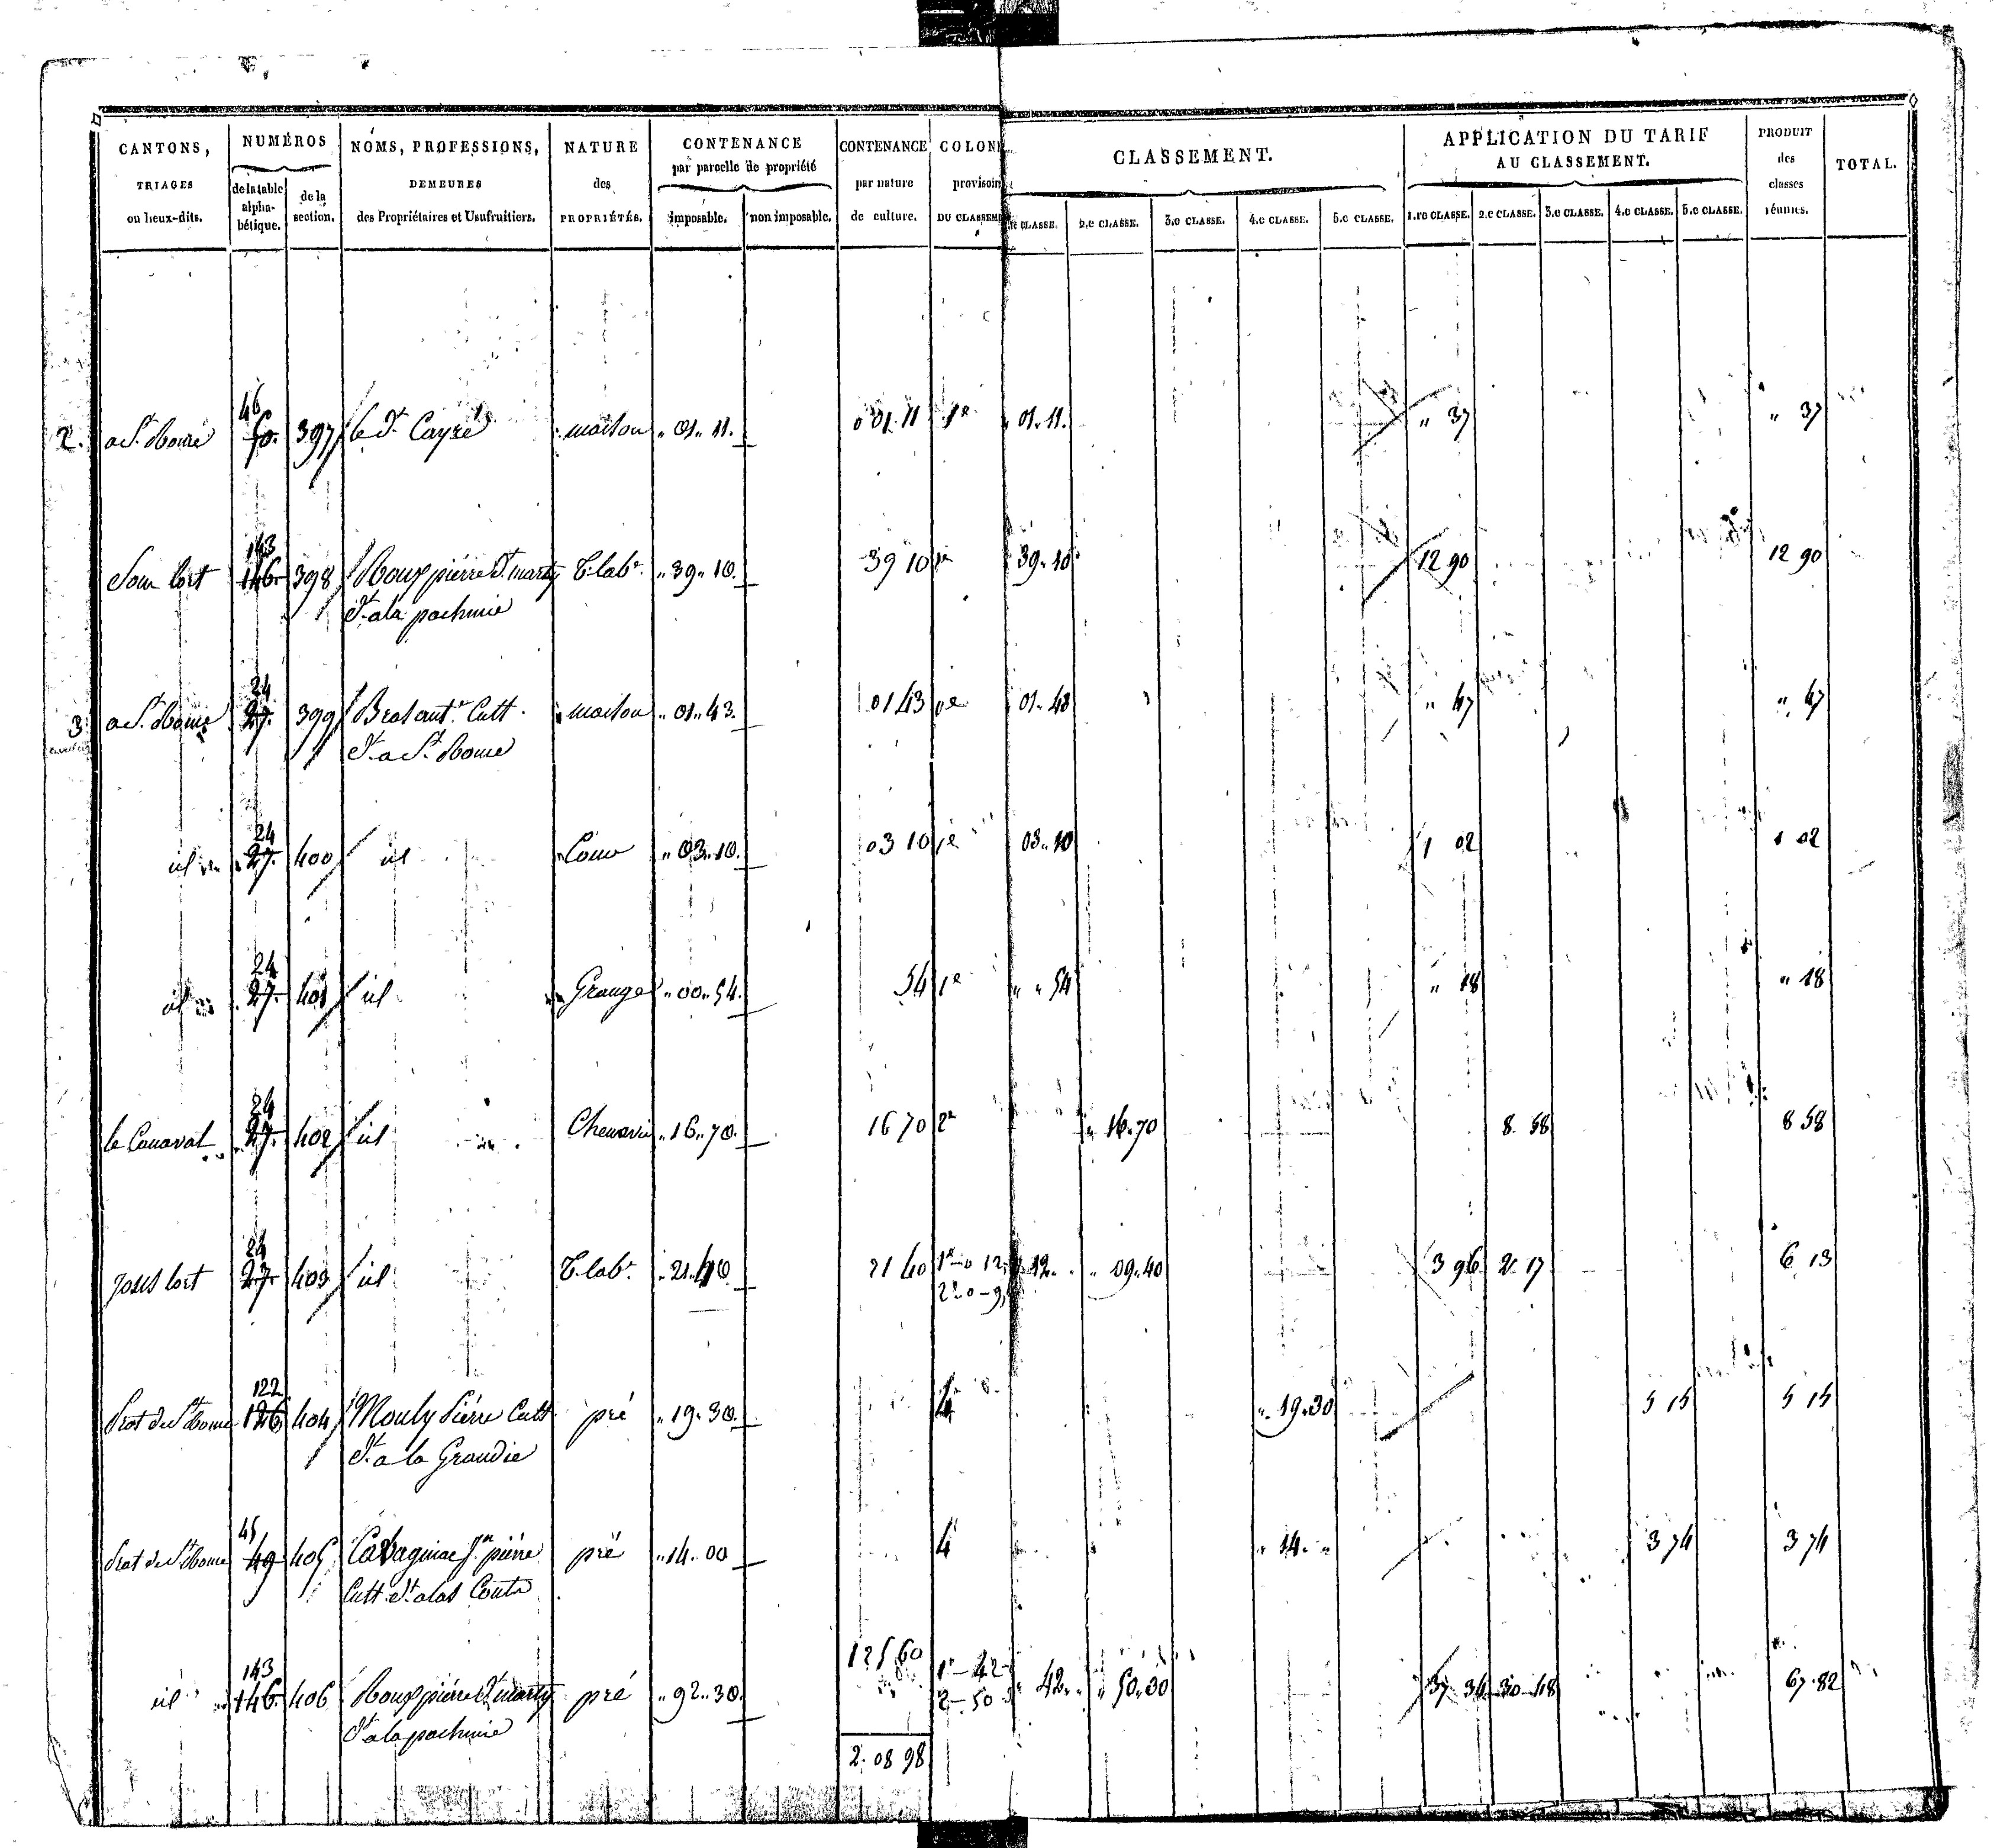 CANTONS, TRIAGES ou lieux-dits. NUMÉROS de la table alphabétique. de la section. NOMS, PROFESSIONS, DEMEURES des Propriétaires et Usufruitiers. NATURE des PROPRIÉTÉS. CONTENANCE par parcelle de propriété imposable. non imposable. CONTENANCE par nature de culture. COLON provisoir DU CLASSEM CLASSEMENT. CLASSE. 2.e CLASSE. 3.e CLASSE. 4.e CLASSE. 5.e CLASSE. APPLICATION DU TARIF AU CLASSEMENT. 1.re CLASSE. 2.e CLASSE. 3.e CLASSE. 4.e CLASSE. 5.e CLASSE. PRODUIT des classes réunies. TOTAL.
46
2. a St. Rome 397 le dt. Cayre maison " 01 " 11. 0 01 11 1e " 01. 11. " 37 " 37
143
Sous lort 146. 398 Roux pierre dt. marty T. labr. " 39 " 10. 39 10 1e 39. 10 12 90 12 90
dt. a la pachinie
24
3. a St. Rome 27. 399 Bras ant. Cult. maison " 01 " 43. 01 43 1e 01. 43 " 47 " 47
dt. a St. Rome
24
id 27. 400 id Cour " 03 " 10. 03 10 1e 03. 10 1 02 1 02
24
id 27. 401 id Grange " 00 " 54. 54 1e " " 54 " 18 " 18
24
le Canaval 27. 402 id Chenevie " 16 " 70. 16 70 2e " 16. 70 8. 58 8 58
24
sous lort 27. 403 id T. labr. " 21. 40 21 40 1e 0 12. 12. " 09. 40 3 96 2. 17 6 13
2e 0 - 9.
122
Prat de St. Rome 126 404 Mouly Pierre Cult pré " 19. 30. 4 " 19. 30 5 15 5 15
dt. a la Graudie
45
Prat de St. Rome 49 405 Cavagniac Jn. pierre pré " 14. 00 4 " 14. " 3 74 3 74
Cult. dt. a las Couts
143 125 60
id 146. 406 Roux pierre dt. marty pré " 92 " 30. 1e - 42 42. " 50. 30 37. 34 30 - 48 67. 82
dt. a la pachinie 2 - 50
2. 08 98